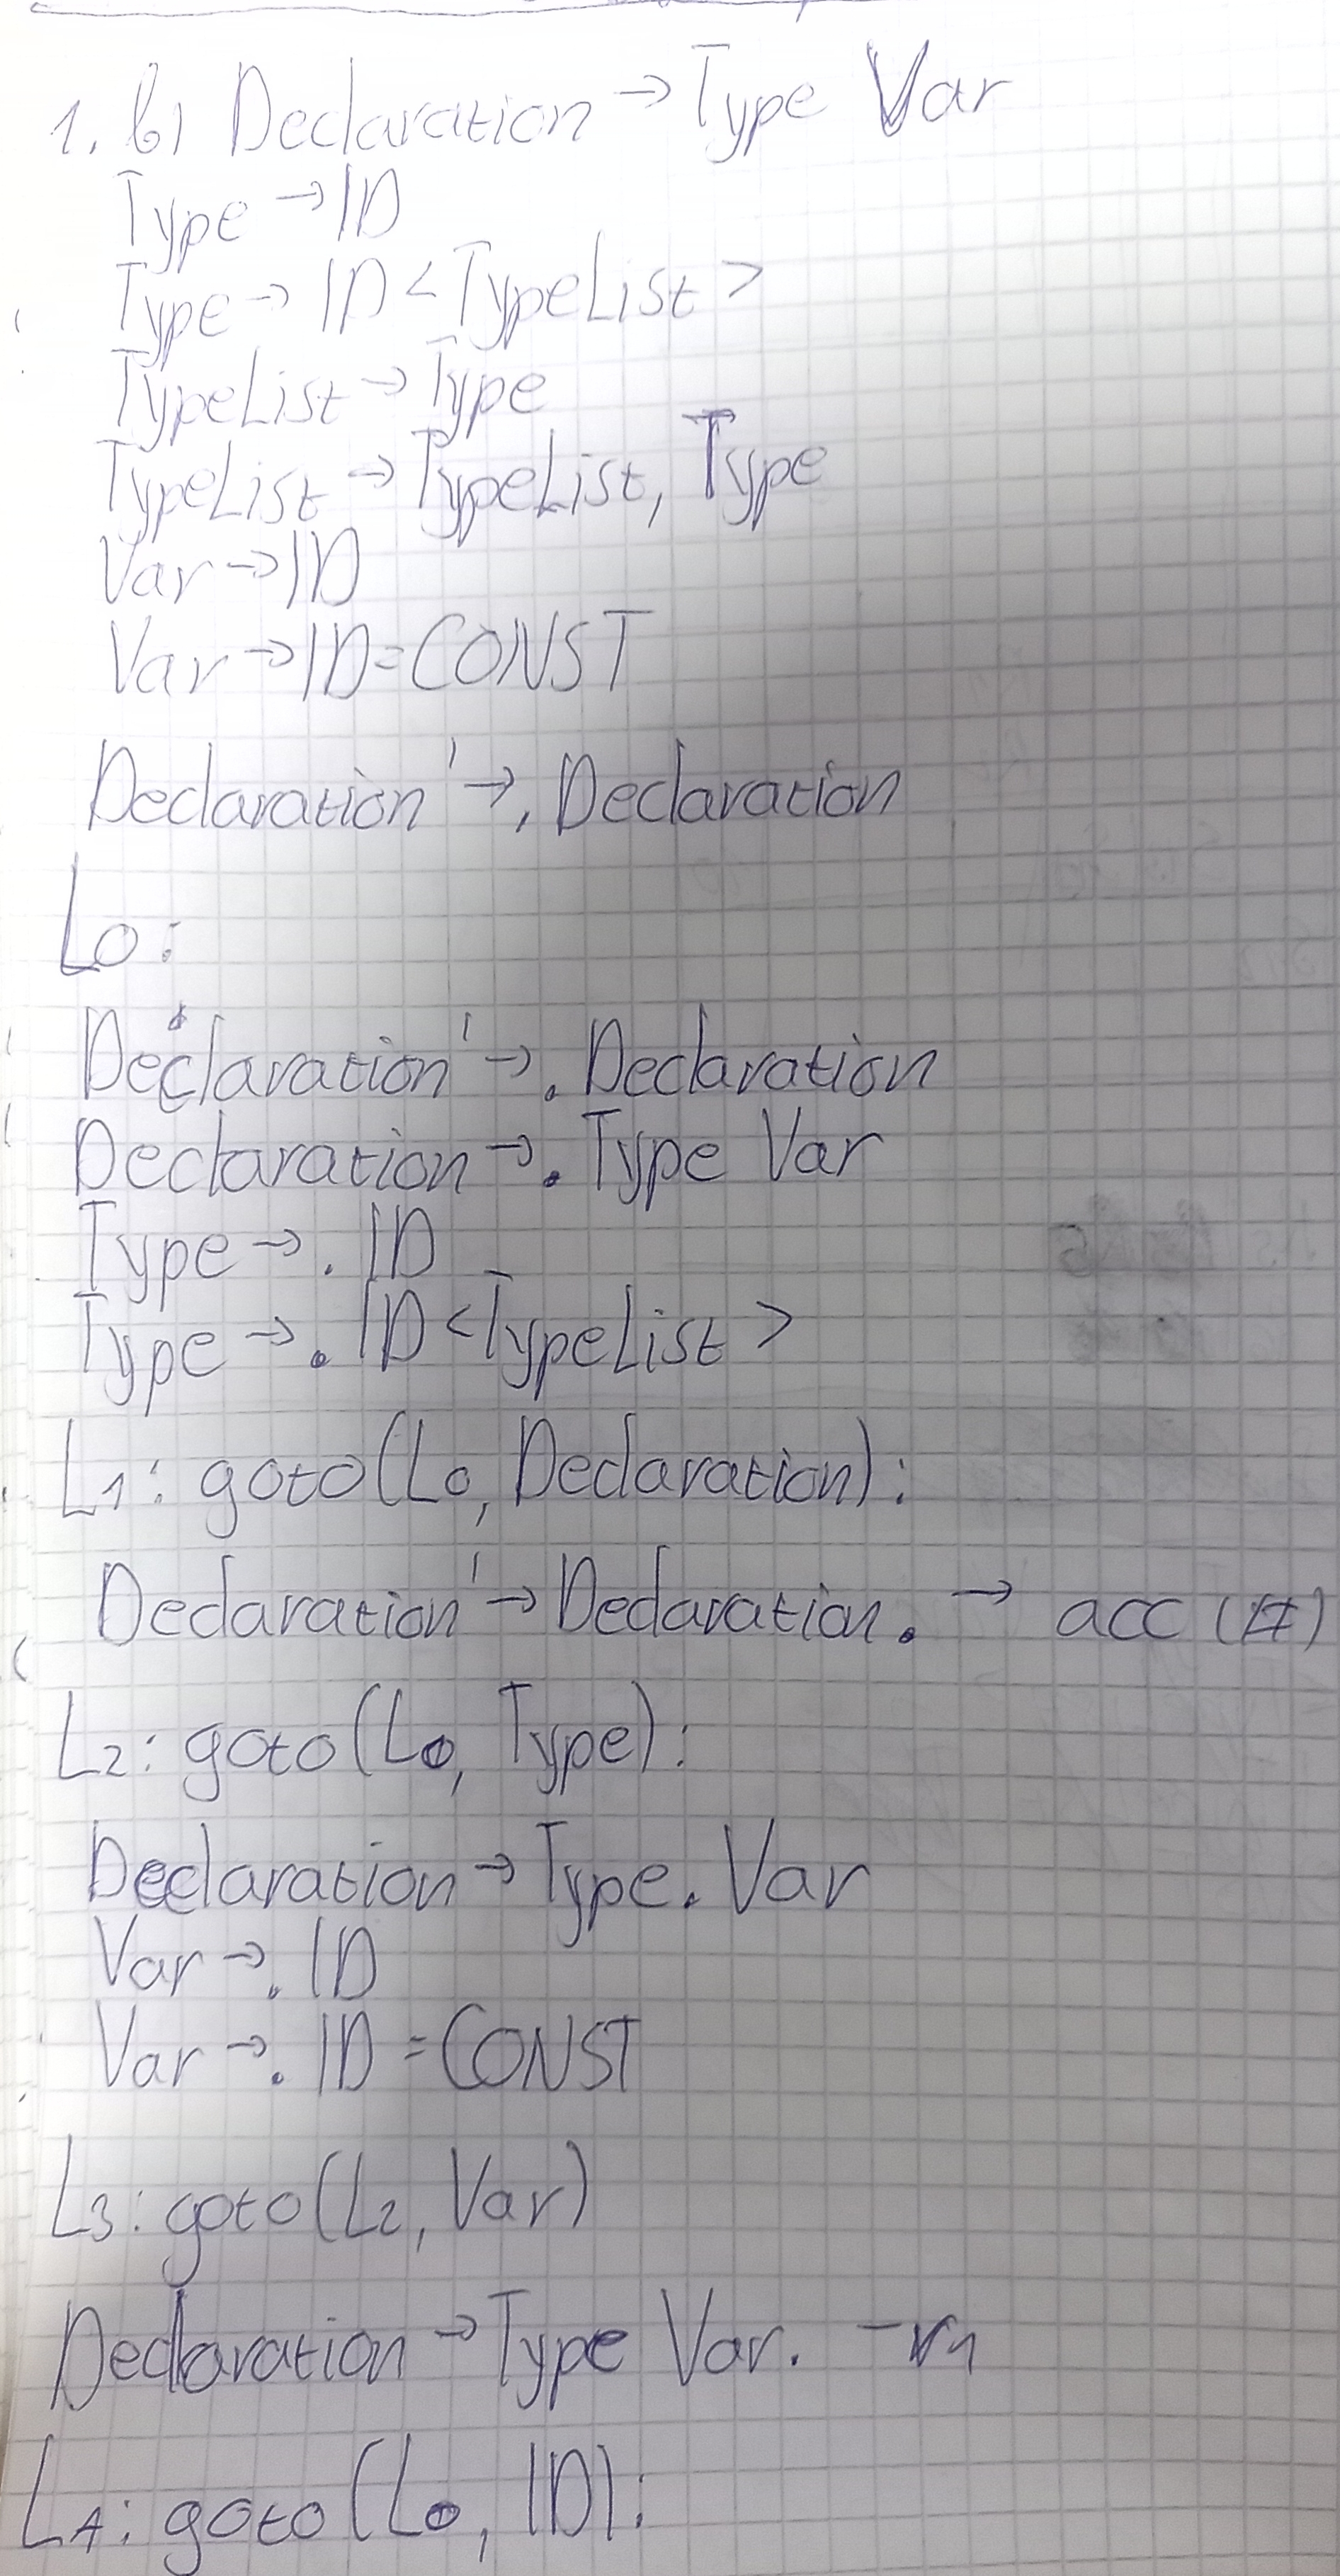 1. b) Declaration → Type Var
Type → ID
Type → ID < TypeList >
TypeList → Type
TypeList → TypeList, Type
Var → ID
Var → ID = CONST
Declaration' → . Declaration
L0:
Declaration' → . Declaration
Declaration → . Type Var
Type → . ID
Type → . ID < TypeList >
L1: goto(L0, Declaration):
Declaration' → Declaration. → acc (#)
L2: goto(L0, Type):
Declaration → Type. Var
Var → . ID
Var → . ID = CONST
L3: goto(L2, Var)
Declaration → Type Var. - r1
L4: goto(L0, ID):